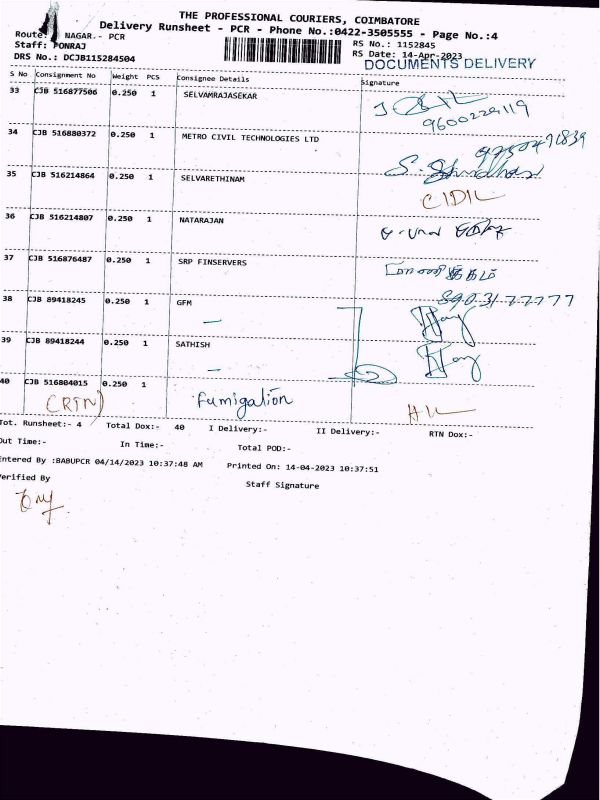 THE PROFESSIONAL COURIERS, COIMBATORE
Delivery Runsheet - PCR - Phone No.:0422-3505555 - Page No.:4
Route: NAGAR.- PCR
RS No.: 1152845
Staff: PONRAJ
RS Date: 14-Apr-2023
DRS No.: DCJB115284504
DOCUMENTS DELIVERY
S No Consignment No Weight PCS Consignee Details Signature
33 CJB 516877506 0.250 1 SELVAMRAJASEKAR
9600229119
34 CJB 516880372 0.250 1 METRO CIVIL TECHNOLOGIES LTD
35 CJB 516214864 0.250 1 SELVARETHINAM
CIDIL
36 CJB 516214807 0.250 1 NATARAJAN
37 CJB 516876487 0.250 1 SRP FINSERVERS
8903177777
38 CJB 89418245 0.250 1 GFM
39 CJB 89418244 0.250 1 SATHISH
40 CJB 516804015 0.250 1 Fumigation
(RTN)
Tot. Runsheet:- 4 Total Dox:- 40 I Delivery:- II Delivery:- RTN Dox:-
Out Time:- In Time:- Total POD:-
Entered By :BABUPCR 04/14/2023 10:37:48 AM Printed On: 14-04-2023 10:37:51
Verified By Staff Signature